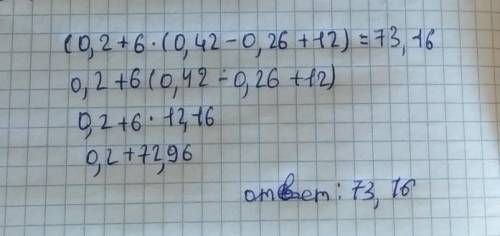 (0,2+6·(0,42-0,26+12)=73,16
0,2+6(0,42-0,26+12)
0,2+6·12,16
0,2+72,96
ответ: 73,16